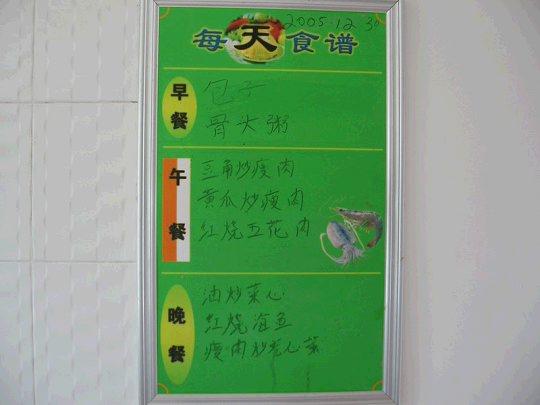 2005.12.30
每天食谱
早餐
包子
骨头粥
午餐
豆角炒瘦肉
黄瓜炒瘦肉
红烧五花肉
晚餐
油炒菜心
红烧海鱼
瘦肉炒卷心菜